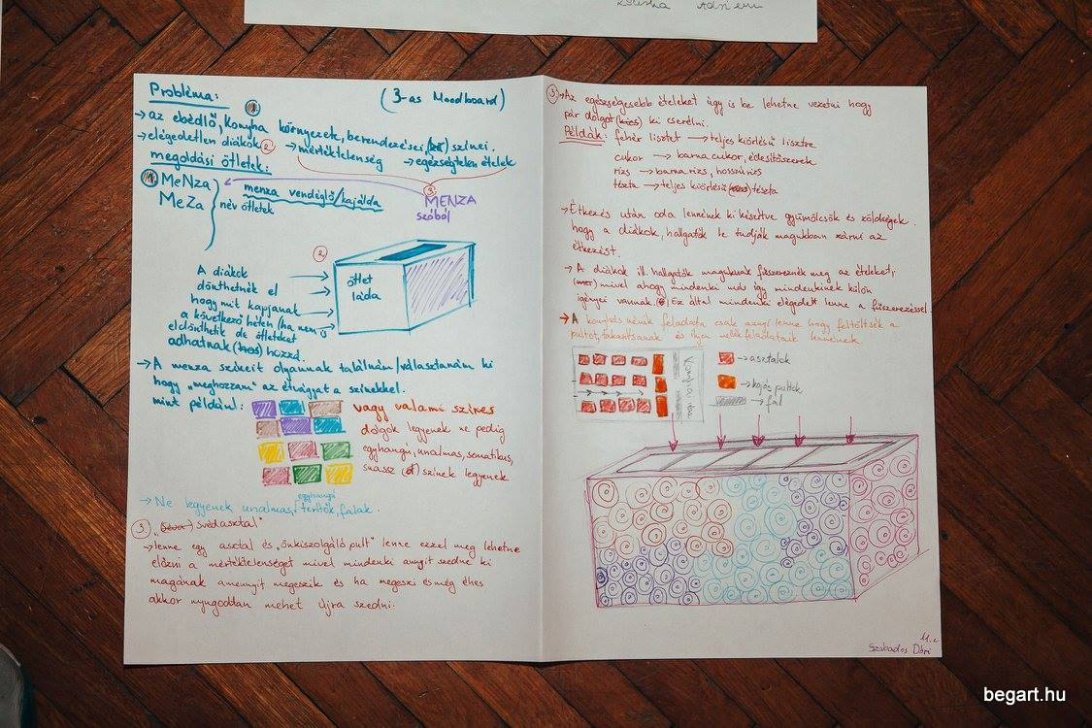 Adri
Probléma:
(3-as Moodboard)
1
→ az ebédlő, Konyha környezete, berendezései, színei.
→ elégedetlen diákok 2 → mértéktelenség → egészségtelen ételek
megoldási ötletek:
1 MeNza
MeZa
név ötletek
menza vendéglő/kajálda
3.
MENZA
szóból
2.
ötlet
láda
A diákok
dönthetnék el
hogy mit kapjanak
a következő héten (ha nem
eldönthetik de ötleteket
adhatnak hozzá.
→ A menza színeit olyannak találnám/választanám ki
hogy „meghozzam" az étvágyat a színekkel.
mint például:
vagy valami színes
dolgok legyenek ne pedig
egyhangú, unalmas, sematikus,
snassz színek legyenek
egyhangú
→ Ne legyenek unalmas, terítők, falak.
3 „svédasztal"
→ lenne egy asztal és „önkiszolgáló pult" lenne ezzel meg lehetne
előzni a mértéktelenséget mivel mindenki annyit szedne ki
magának amennyit megeszik és ha megeszi és még éhes
akkor nyugodtan mehet újra szedni.
3 → Az egészségesebb ételeket úgy is be lehetne vezetni hogy
pár dolgot ki cserélni.
Példák: fehér lisztet → teljes kiőrlésű lisztre
cukor → barna cukor, édesítőszerek
rizs → barna rizs, hosszú rizs
tészta → teljes kiőrlésű tészta
→ Étkezés után oda lennének ki készítve gyümölcsök és zöldségek
hogy a diákok, hallgatók le tudják magukban zárni az
étkezést.
→ A diákok ill. hallgatók maguknak fűszereznék meg az ételeket
mivel ahogy mindenki más így mindenkinek külön
igényei vannak. Ez által mindenki elégedett lenne a fűszerezéssel
→ A konyhás nénik feladata csak annyi lenne hogy feltöltsék a
pultot, takarítsanak és ilyen mellékfeladataik lennének.
Konyha
→ asztalok
→ kajás pultok
→ fal
11.c
Szabados Dóri
begart.hu